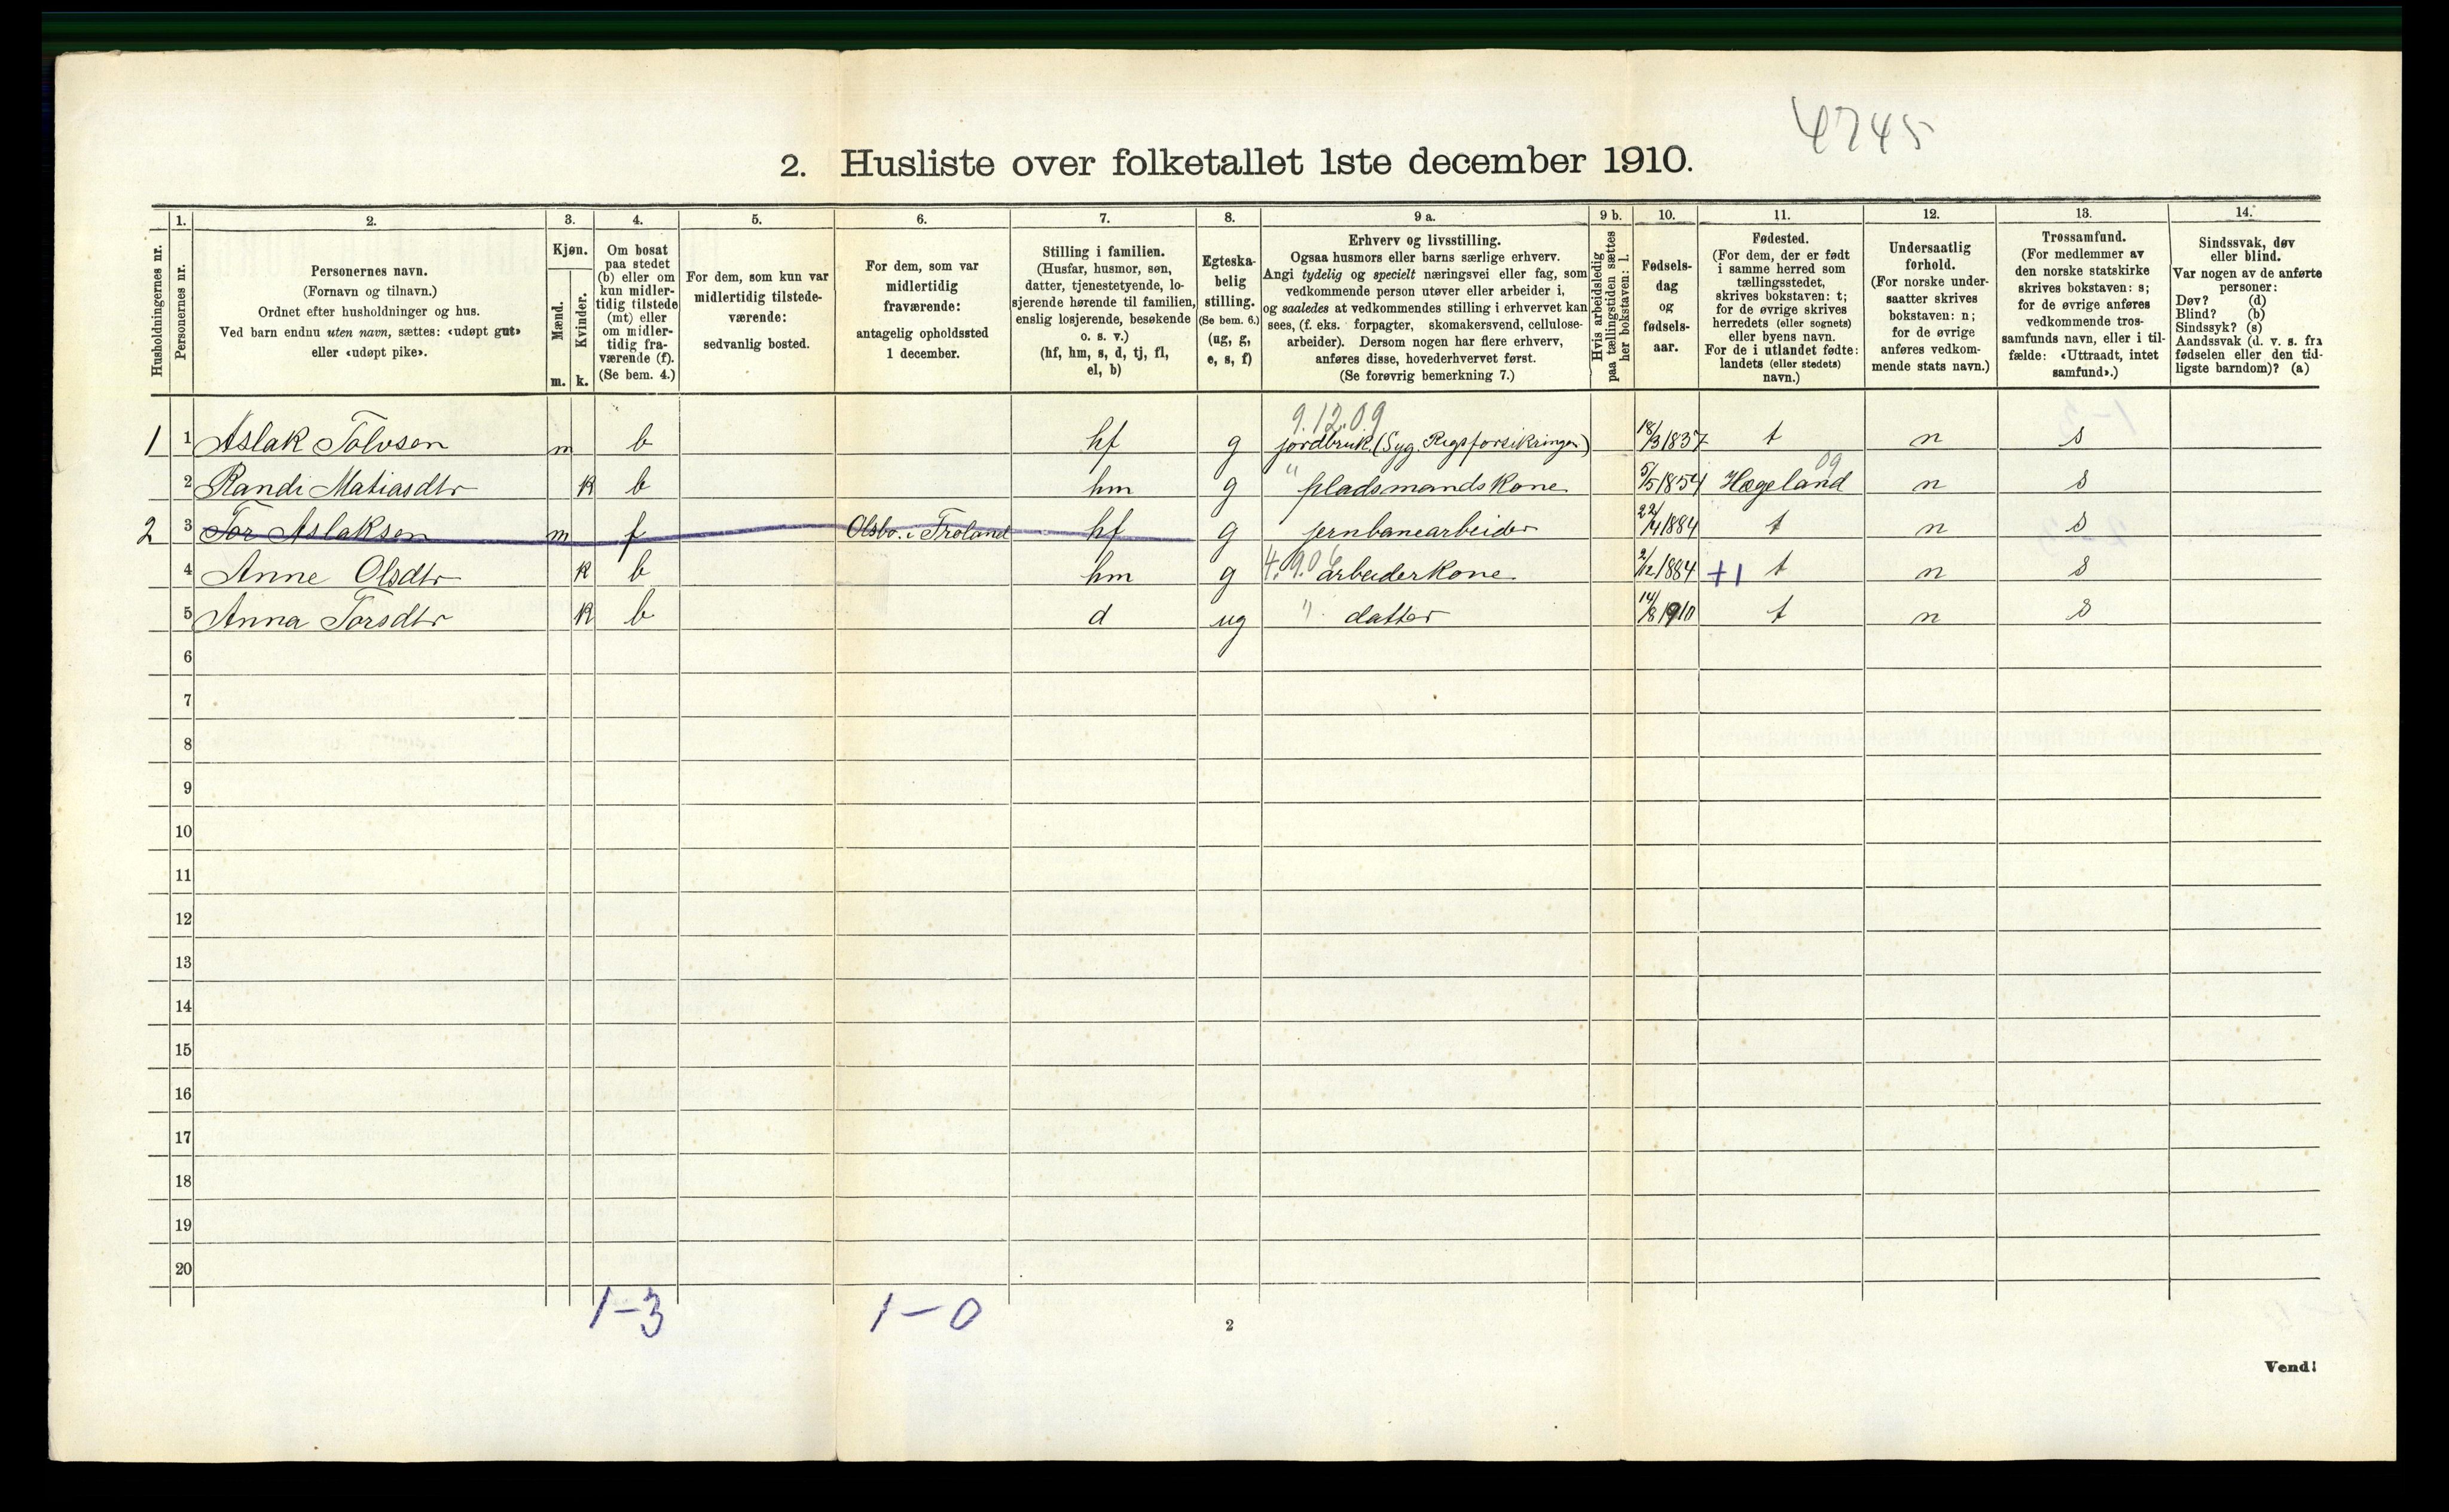 4745
2. Husliste over folketallet 1ste december 1910.
Husholdningernes nr.
1.
Personernes nr.
2.
Personernes navn.
(Fornavn og tilnavn.)
Ordnet efter husholdninger og hus.
Ved barn endnu uten navn, sættes: «udøpt gut»
eller «udøpt pike».
3.
Kjøn.
Mænd.
m.
Kvinder.
k.
4.
Om bosat
paa stedet
(b) eller om
kun midler-
tidig tilstede
(mt) eller
om midler-
tidig fra-
værende (f).
(Se bem. 4.)
5.
For dem, som kun var
midlertidig tilstede-
værende:
sedvanlig bosted.
6.
For dem, som var
midlertidig
fraværende:
antagelig opholdssted
1 december.
7.
Stilling i familien.
(Husfar, husmor, søn,
datter, tjenestetyende, lo-
sjerende hørende til familien,
enslig losjerende, besøkende
o. s. v.)
(hf, hm, s, d, tj, fl,
el, b)
8.
Egteska-
belig
stilling.
(Se bem. 6.)
(ug, g,
e, s, f)
9 a.
Erhverv og livsstilling.
Ogsaa husmors eller barns særlige erhverv.
Angi tydelig og specielt næringsvei eller fag, som
vedkommende person utøver eller arbeider i,
og saaledes at vedkommendes stilling i erhvervet kan
sees, (f. eks. forpagter, skomakersvend, cellulose-
arbeider). Dersom nogen har flere erhverv,
anføres disse, hovederhvervet først.
(Se forøvrig bemerkning 7.)
9 b.
Hvis arbeidsledig
paa tællingstiden sættes
her bokstaven: l.
10.
Fødsels-
dag
og
fødsels-
aar.
11.
Fødested.
(For dem, der er født
i samme herred som
tællingsstedet,
skrives bokstaven: t;
for de øvrige skrives
herredets (eller sognets)
eller byens navn.
For de i utlandet fødte:
landets (eller stedets)
navn.)
12.
Undersaatlig
forhold.
(For norske under-
saatter skrives
bokstaven: n;
for de øvrige
anføres vedkom-
mende stats navn.)
13.
Trossamfund.
(For medlemmer av
den norske statskirke
skrives bokstaven: s;
for de øvrige anføres
vedkommende tros-
samfunds navn, eller i til-
fælde: «Uttraadt, intet
samfund».)
14.
Sindssvak, døv
eller blind.
Var nogen av de anførte
personer:
Døv? (d)
Blind? (b)
Sindssyk? (s)
Aandssvak (d. v. s. fra
fødselen eller den tid-
ligste barndom)? (a)
9.12.09
1 1 Aslak Tolvsen m b hf g jordbruk (Syg. Rigsforsikringen) 18/3 1837 t n s
09
2 Randi Matiasdtr k b hm g " pladsmandskone 5/5 1854 Hægeland n s
2 3 Tor Aslaksen m f Olsbo. i Froland hf g jernbanearbeider 22/4 1884 t n s
4 Anne Olsdtr k b hm g 4.9.06 arbeiderkone 2/12 1884 +1 t n s
5 Anna Torsdtr k b d ug " datter 14/8 1910 t n s
6
7
8
9
10
11
12
13
14
15
16
17
18
19
20
1-3 1-0
2
Vend!